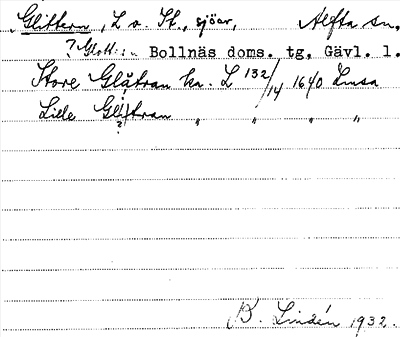 Glittern, L. o. St., sjöar, Alfta sn,
? Glott- : Bollnäs doms. tg, Gävl. l.
Store Glåtran kn. L 132/14 1640 Insa
Lille Glittran " " " "
?
B. Lindén 1932.